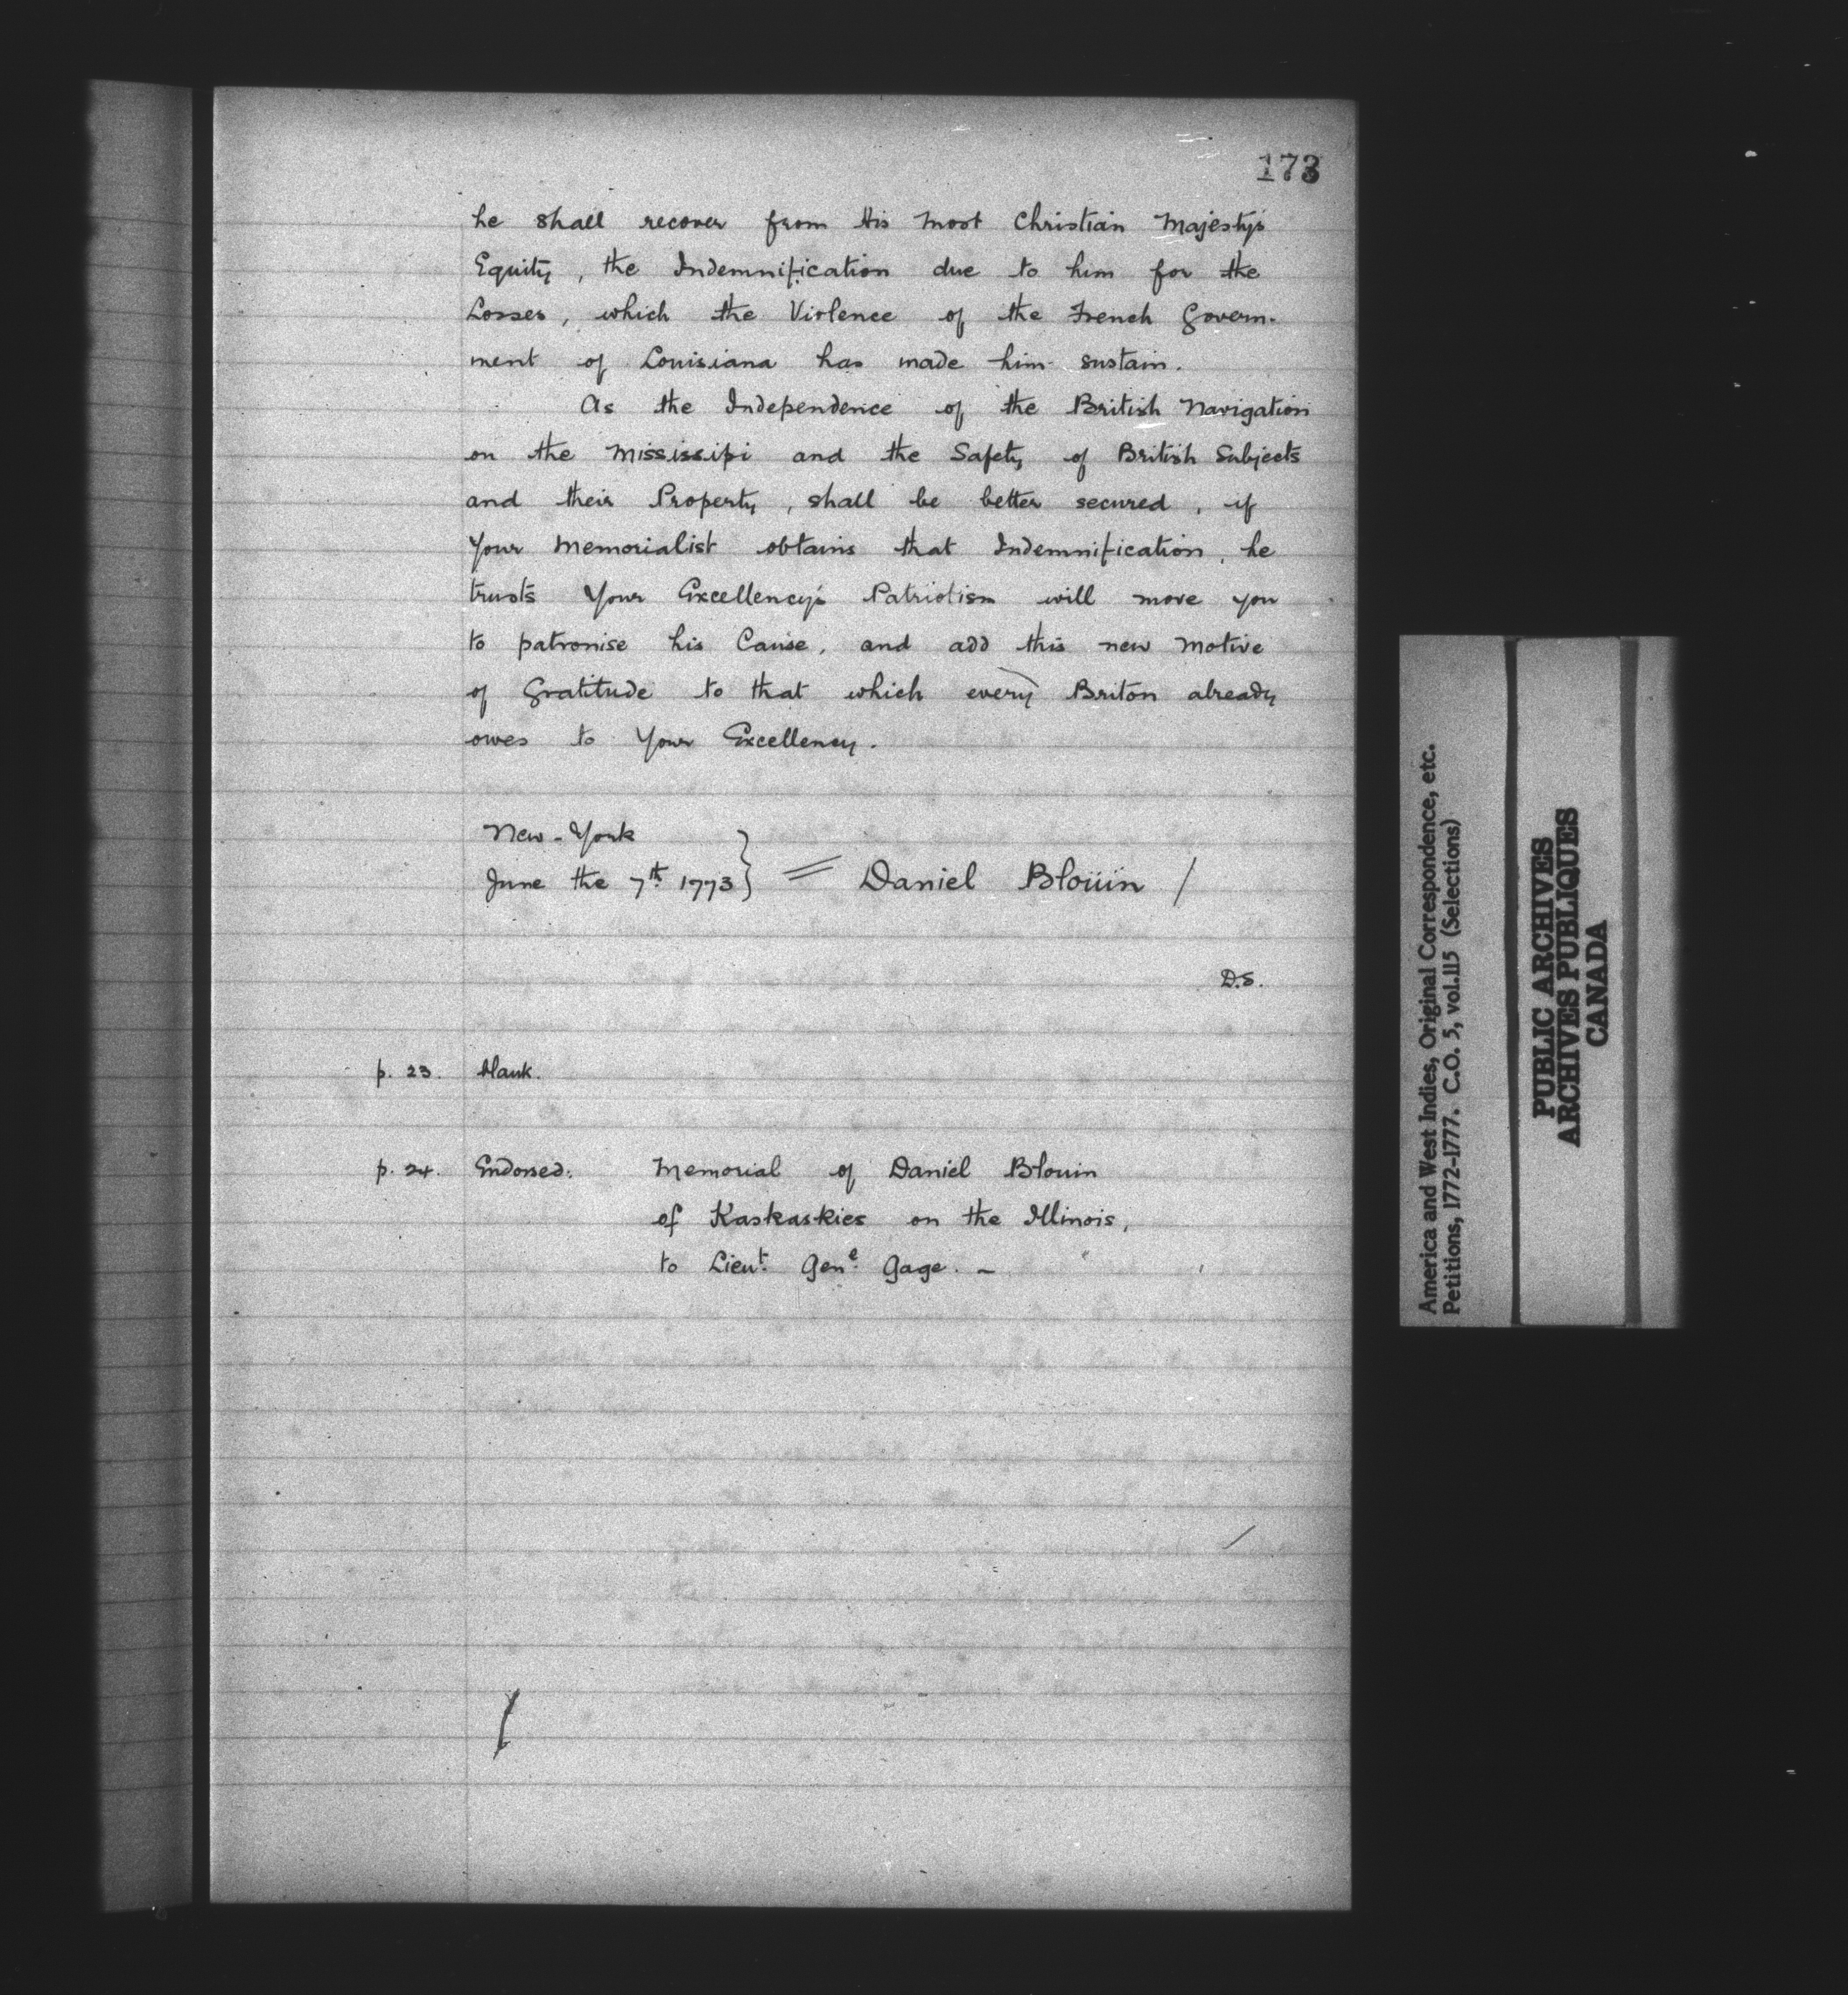 173
he shall recover from His Most Christian Majesty's
Equity, the Indemnification due to him for the
Losses, which the Violence of the French Govern-
ment of Louisiana has made him sustain.
As the Independence of the British Navigation
on the Mississipi and the Safety of British Subjects
and their Property, shall be better secured, if
Your Memorialist obtains that Indemnification, he
trusts Your Excellency's Patriotism will move you
to patronise his Cause, and add this new Motive
of Gratitude to that which every Briton already
owes to Your Excellency.
New-York
June the 7th 1773} = Daniel Bloüin /
D.S.
p. 23. blank.
p. 24. Endorsed: Memorial of Daniel Blouin
of Kaskaskies on the Illinois,
to Lieut. Genl. Gage. -
America and West Indies, Original Correspondence, etc.
Petitions, 1772-1777. C.O. 5, vol.115 (Selections)
PUBLIC ARCHIVES
ARCHIVES PUBLIQUES
CANADA